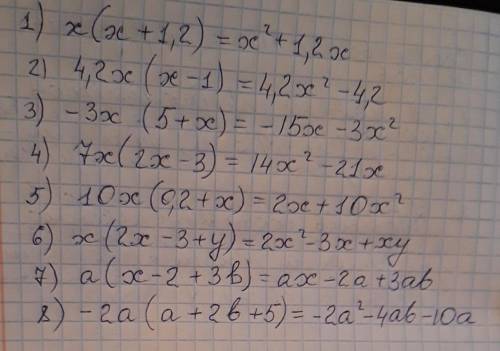 1) x(x+1,2)=x²+1,2x
2) 4,2x(x-1)=4,2x²-4,2
3) -3x (5+x)=-15x-3x²
4) 7x(2x-3)=14x²-21x
5) 10x(0,2+x)=2x+10x²
6) x(2x-3+y)=2x²-3x+xy
7) a(x-2+3b)=ax-2a+3ab
8) -2a(a+2b+5)=-2a²-4ab-10a